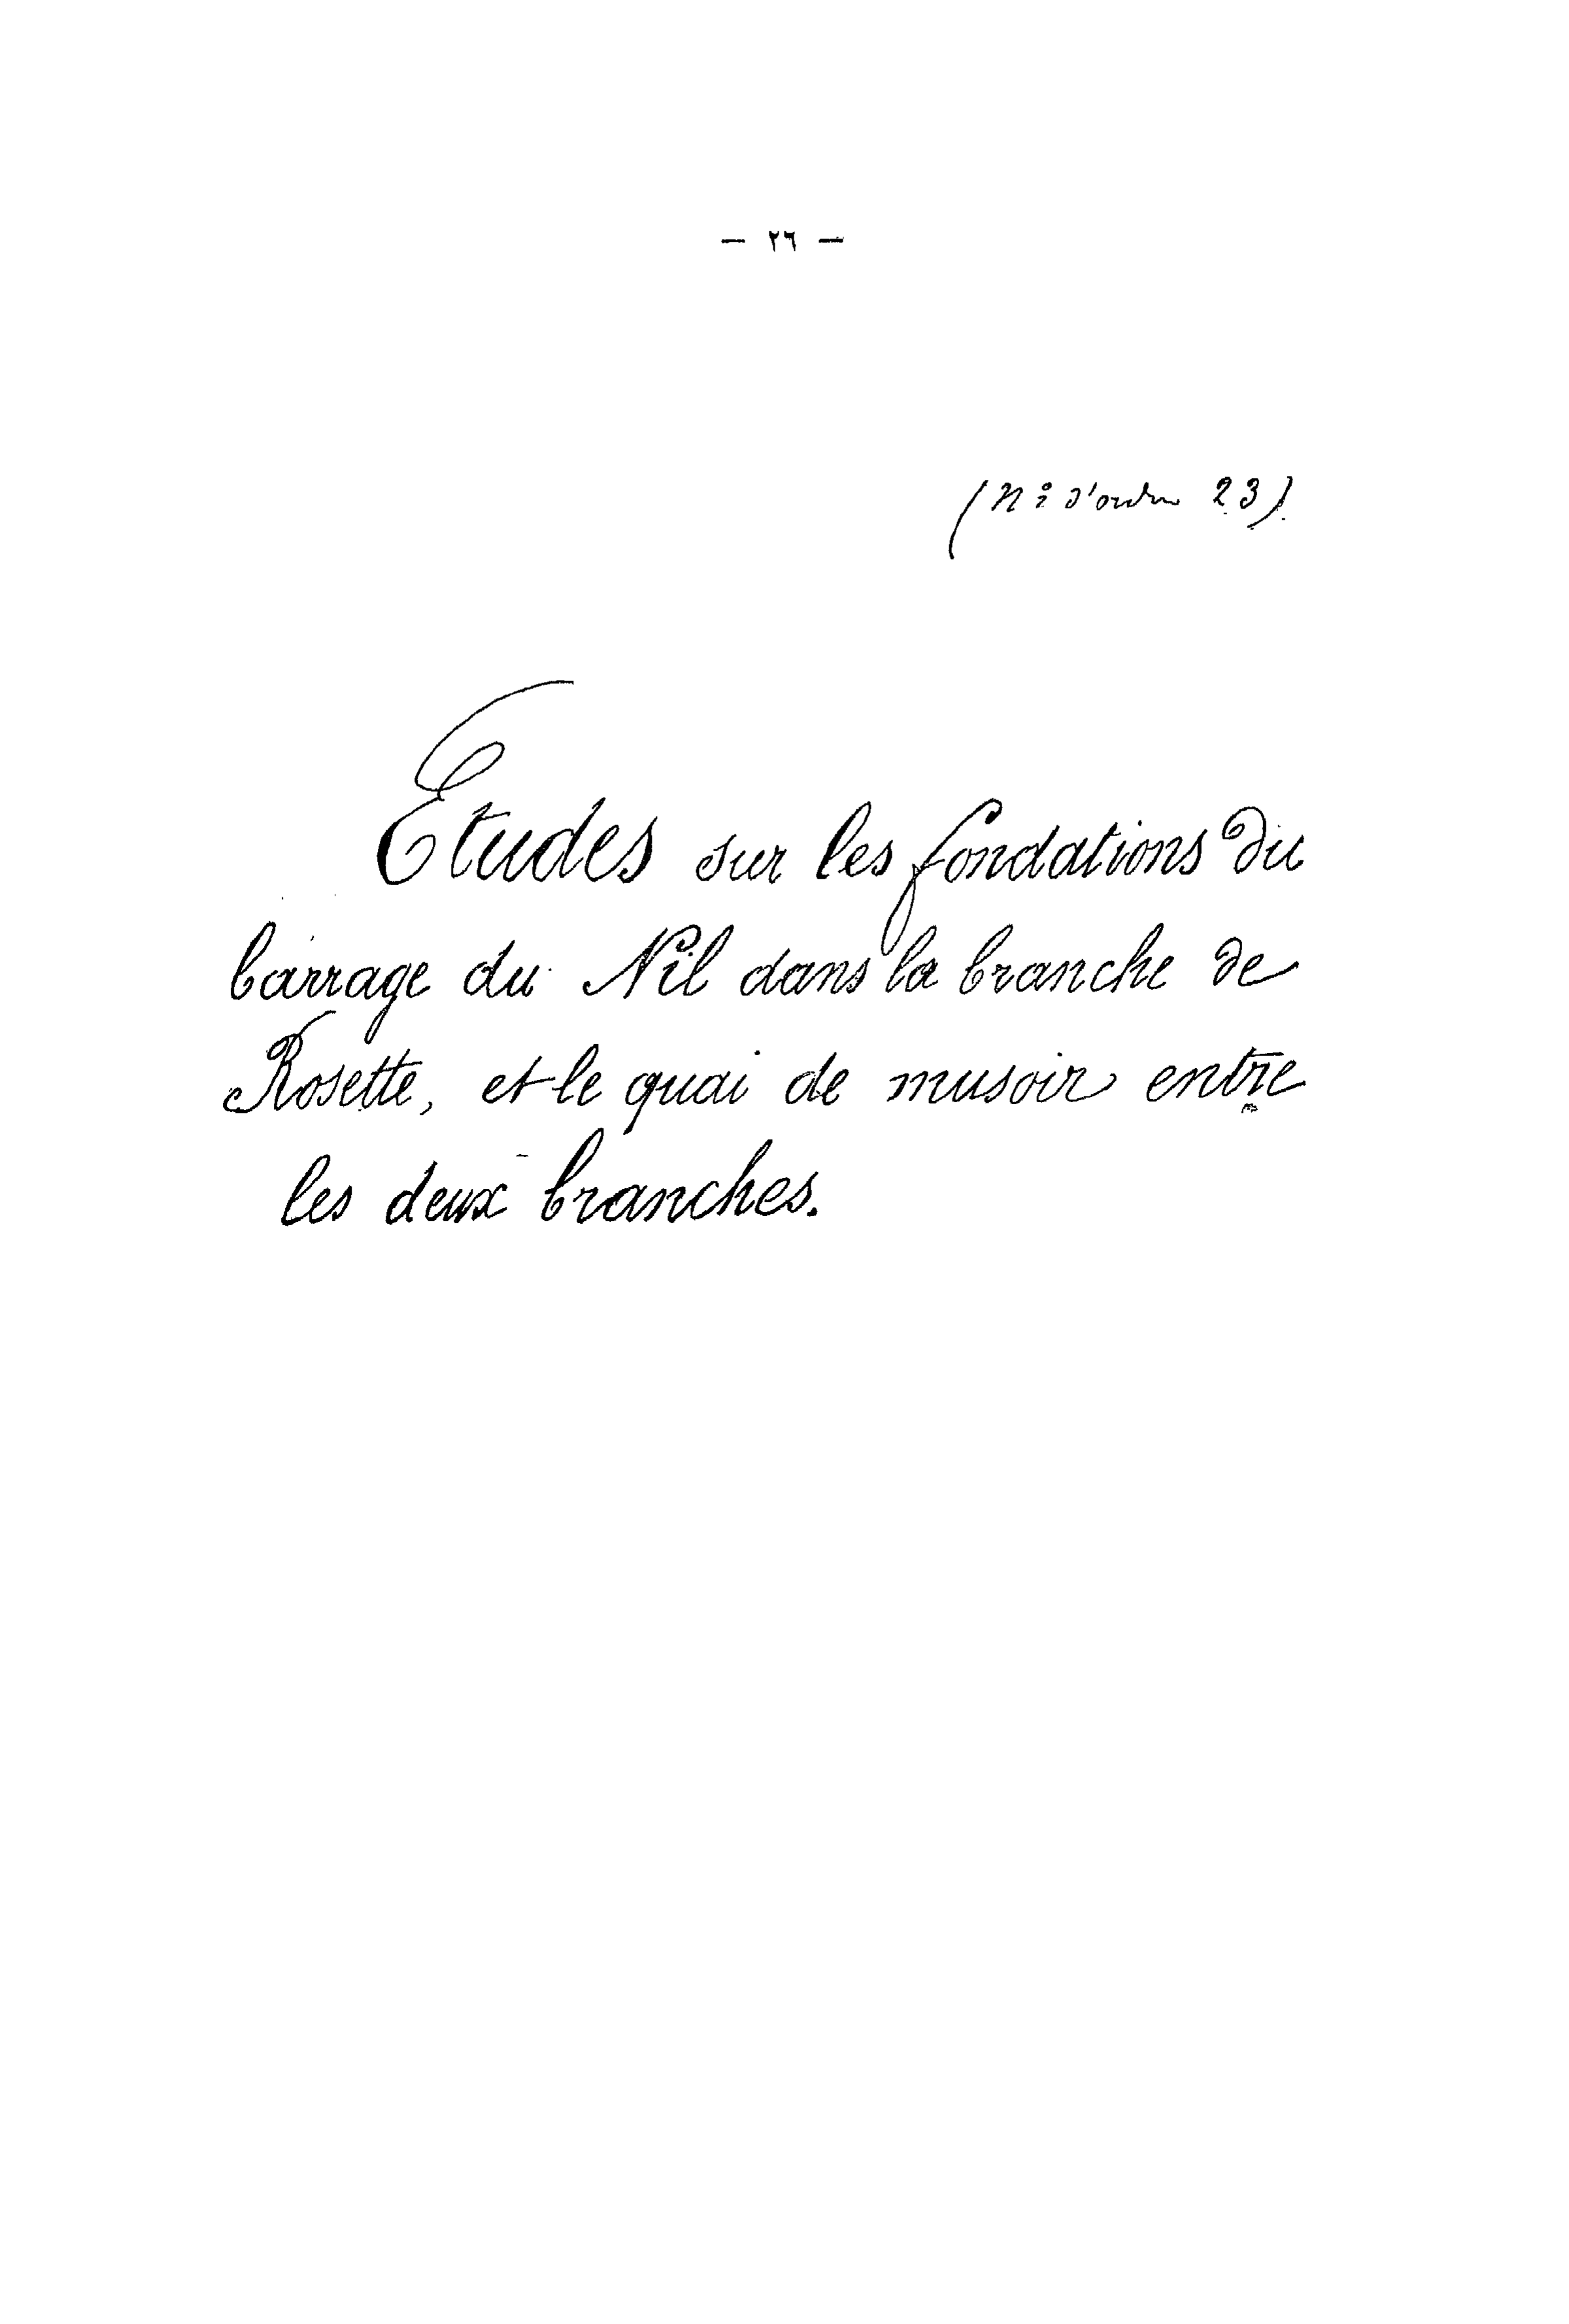 — ٢٦ —
(Nº d'ordre 23)
Etudes sur les fondations du
barrage du Nil dans la branche de
Rosette, et le quai de musoir entre
les deux branches.